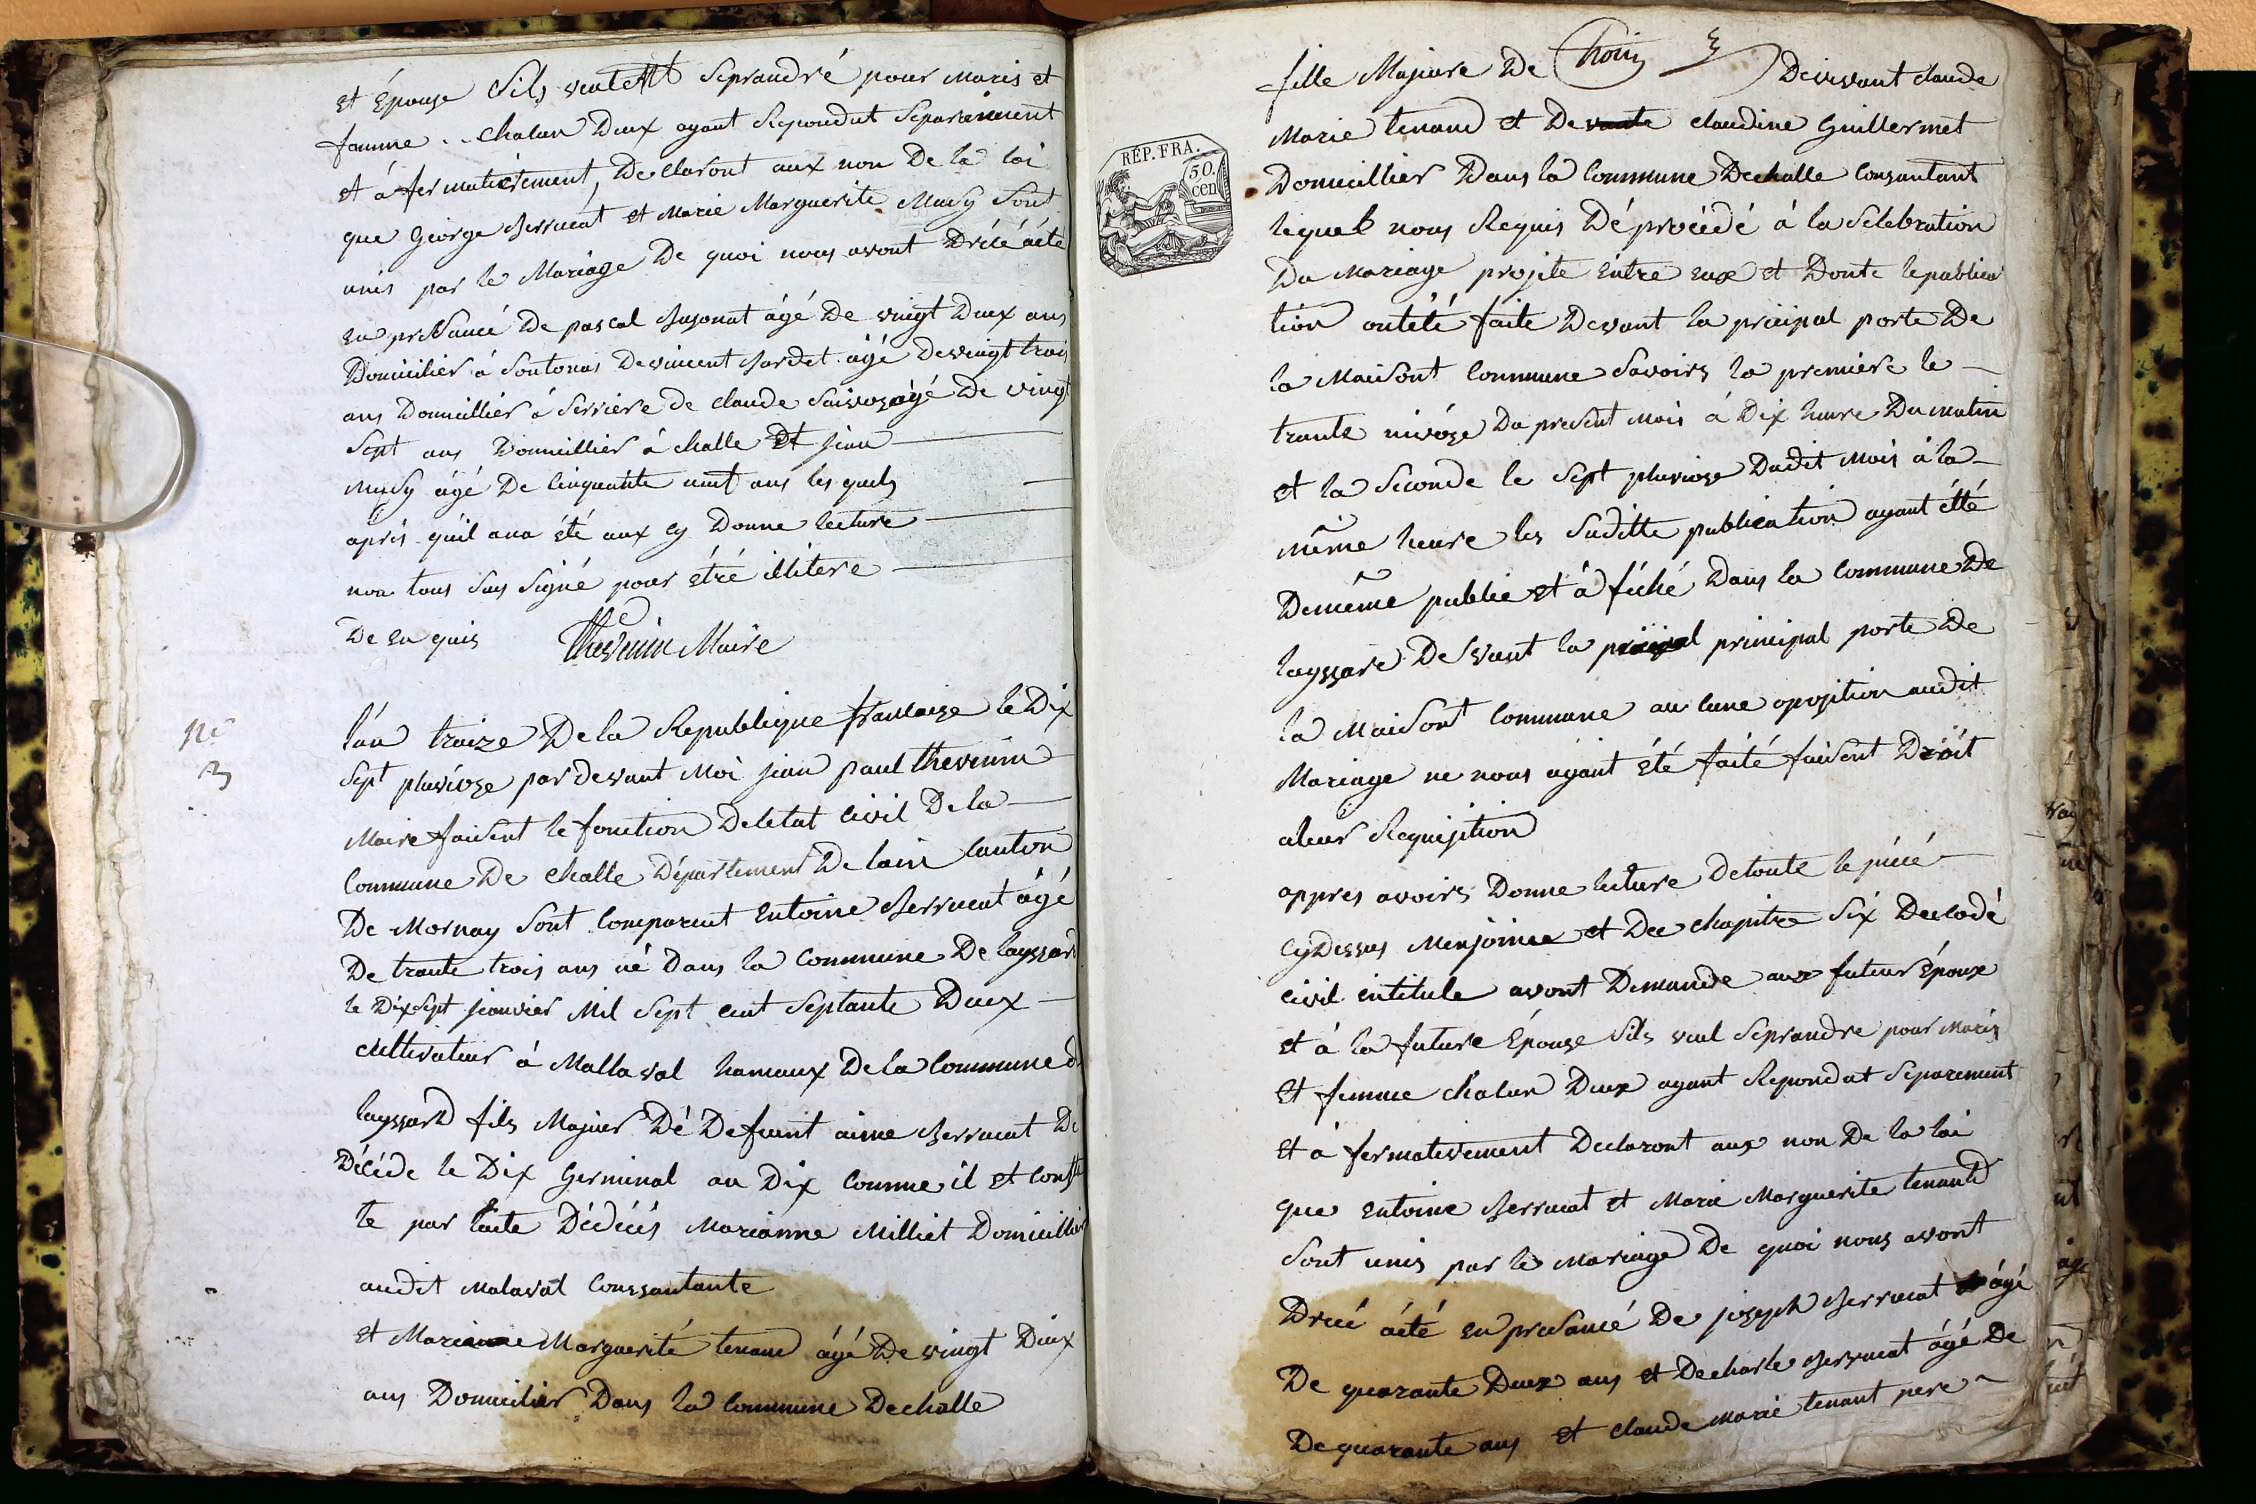 et Épouse Sils veulett seprandré pour maris et
famme .. chalun Deux ayant Repondut Separeiment
et á fermativement, Declaront aux non De la loi
que George Berrucat et Marie Marguerite Mury sont
unis par le Mariage De quoi nous avont Dréćé áćté
en présancé De pascal Jusonat ágé De vingt Deux ans
Domicilier á Sontonas De vincent Jardet ágé De vingt trois
ans Domicillier á Serriere de claude ágé De vingt
Sept ans Domicillier á challe Et jean
ágé De Cinquante ans les quels
aprés quil ana été aux cy Donne lecture
non tous sus Signé pour étré illitere
De en quis Thevenin Maire
No
3
lán traize De la Republique francaise le Dix
Sept pluvioze par devant Moi jean paul thevenin
Maire faisent le fonction Deletat Civil De la
Commune De challe Département De lain Canton
De Mornay Sont Comparent Entoine Berrucat ágé
De trante trois ans né Dans la Commune De layssard
le Dixsept jeanvier Mil Sept cent Septante Deux
cultivateur á Mallaval hamaux De la Commune de
layssard fils Majuer Dé Defeunt aime Berrucat De
Décéde le Dix Germinal an Dix Comme il et Consta
te par láćte Dédécés Marianne Milliet Domicillier
audit Malaval Conssantante
et Marianne Marguerité tenand ágé De vingt Deux
ans Domicilier Dans la Commune De challe
fille Majeure De Choin 3 Deivant claude
Marie tenand et De vante claudine Guillermet
Domicillier Dans la Commune De challe Consantant
lequel nous Requis Dé procédé á la Sélebration
Du Mariage projete Entre eux et Donte lepublica
tion ontété faite Devant la priiipal porte De
la Maisont Commune Savoirs la premiére le
trante nivóze Du present Mois á Dix heure Du matin
et la Seconde le Sept pluvioze Dudit Mois á la
même heure les Suditte publication ayant étté
Deméme publie et á féché Dans la Commune De
layssare Devant la principal porte De
la Maisont Commune au cune opozition audit
Mariage ne nous áyant été faité faisent Dröit
aleur Requizition
RÉP. FRA.
50.
cen
appres avoirs Donne lecture Detoute le piécé
Cy Dessus Menjoinee et Dee chapitre Six Decodé
civil intitule avont Demande aux futeur Époux
et á la future Épouse Sils veul Seprandre pour maris
et femme chalun Deux ayant Repondut Separement
et á fermativement Declaront aux non De la loi
que Entoine Berrucat et Marie Marguerite tenand
Sont unis par le Mariage De quoi nous avont
Drécé áćté en présancé De jozeph Berrucat ágé
De quarante Deux ans et De charle Berrucat ágé De
De quarante ans et claude Marie tenant pere